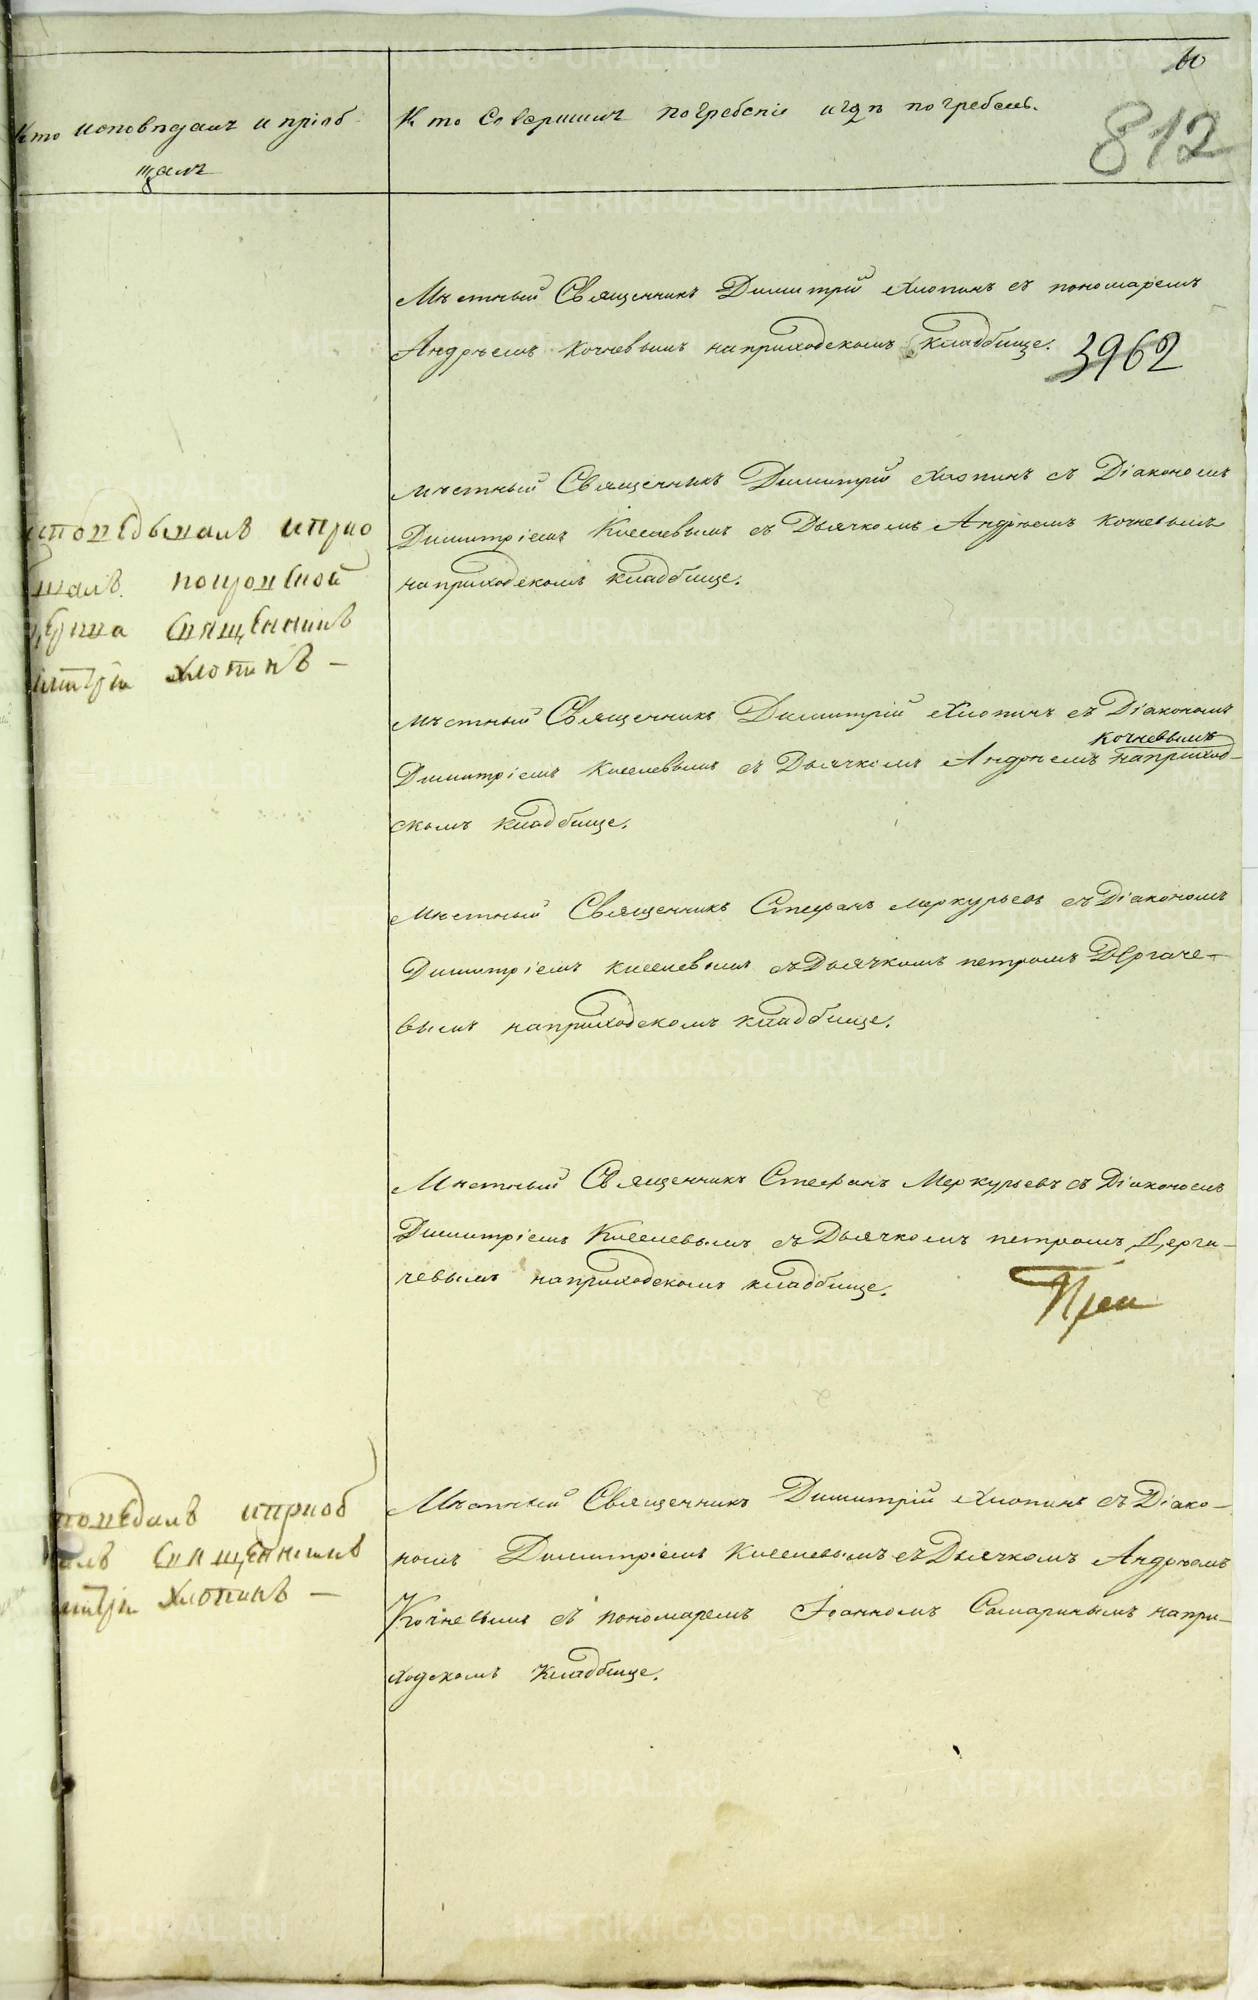 Кто исповѣдалъ и пріоб
щалъ
Кто совершилъ погребеніе и гдѣ погребенъ.
812
Мѣстный Священникъ Димитрій Хлопинъ съ пономаремъ
Андрѣемъ Кочневымъ на приходскомъ кладбище.
3962
Мѣстный Священникъ Димитрій Хлопинъ съ Діакономъ
Димитріемъ Киселевымъ съ Дьячкомъ Андрѣемъ Кочневымъ
на приходскомъ кладбище.
исповѣдывалъ иприо
щалъ
Священникъ
Хлопинъ —
Мѣстный Священникъ Димитрій Хлопинъ съ Діакономъ
Кочневымъ
Димитріемъ Киселевымъ съ Дьячкомъ Андрѣемъ на приход-
скомъ кладбище.
Мѣстный Священникъ Стефанъ Меркурьевъ съ Діакономъ
Димитріемъ Киселевымъ съ Дьячкомъ петромъ Дергаче-
вымъ на приходскомъ кладбище.
Мѣстный Священникъ Стефанъ Меркурьевъ съ Діакономъ
Димитріемъ Киселевымъ съ Дьячкомъ петромъ Дерга-
чевымъ на приходскомъ кладбище.
Мѣстный Священникъ Димитрій Хлопинъ съ Діако-
номъ Димитріемъ Киселевымъ съ Дьячкомъ Андрѣемъ
Кочневымъ съ пономаремъ Іоанномъ Самаринымъ на при-
ходскомъ кладбище.
поведалъ иприоб
алъ Священникъ
Хлопинъ —
METRIKI.GASO-URAL.RU